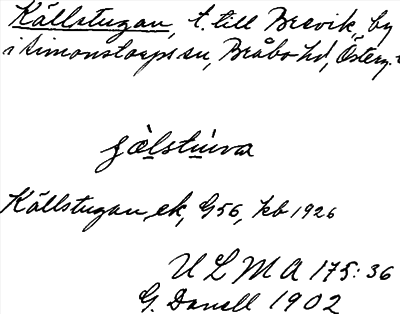 Källstugan, t. till Bresvik, by
i Simonstorps sn, Bråbo hd, Österg.
Källstugan, ek, G56, kb 1926
ULMA 175:36
G. Danell 1902